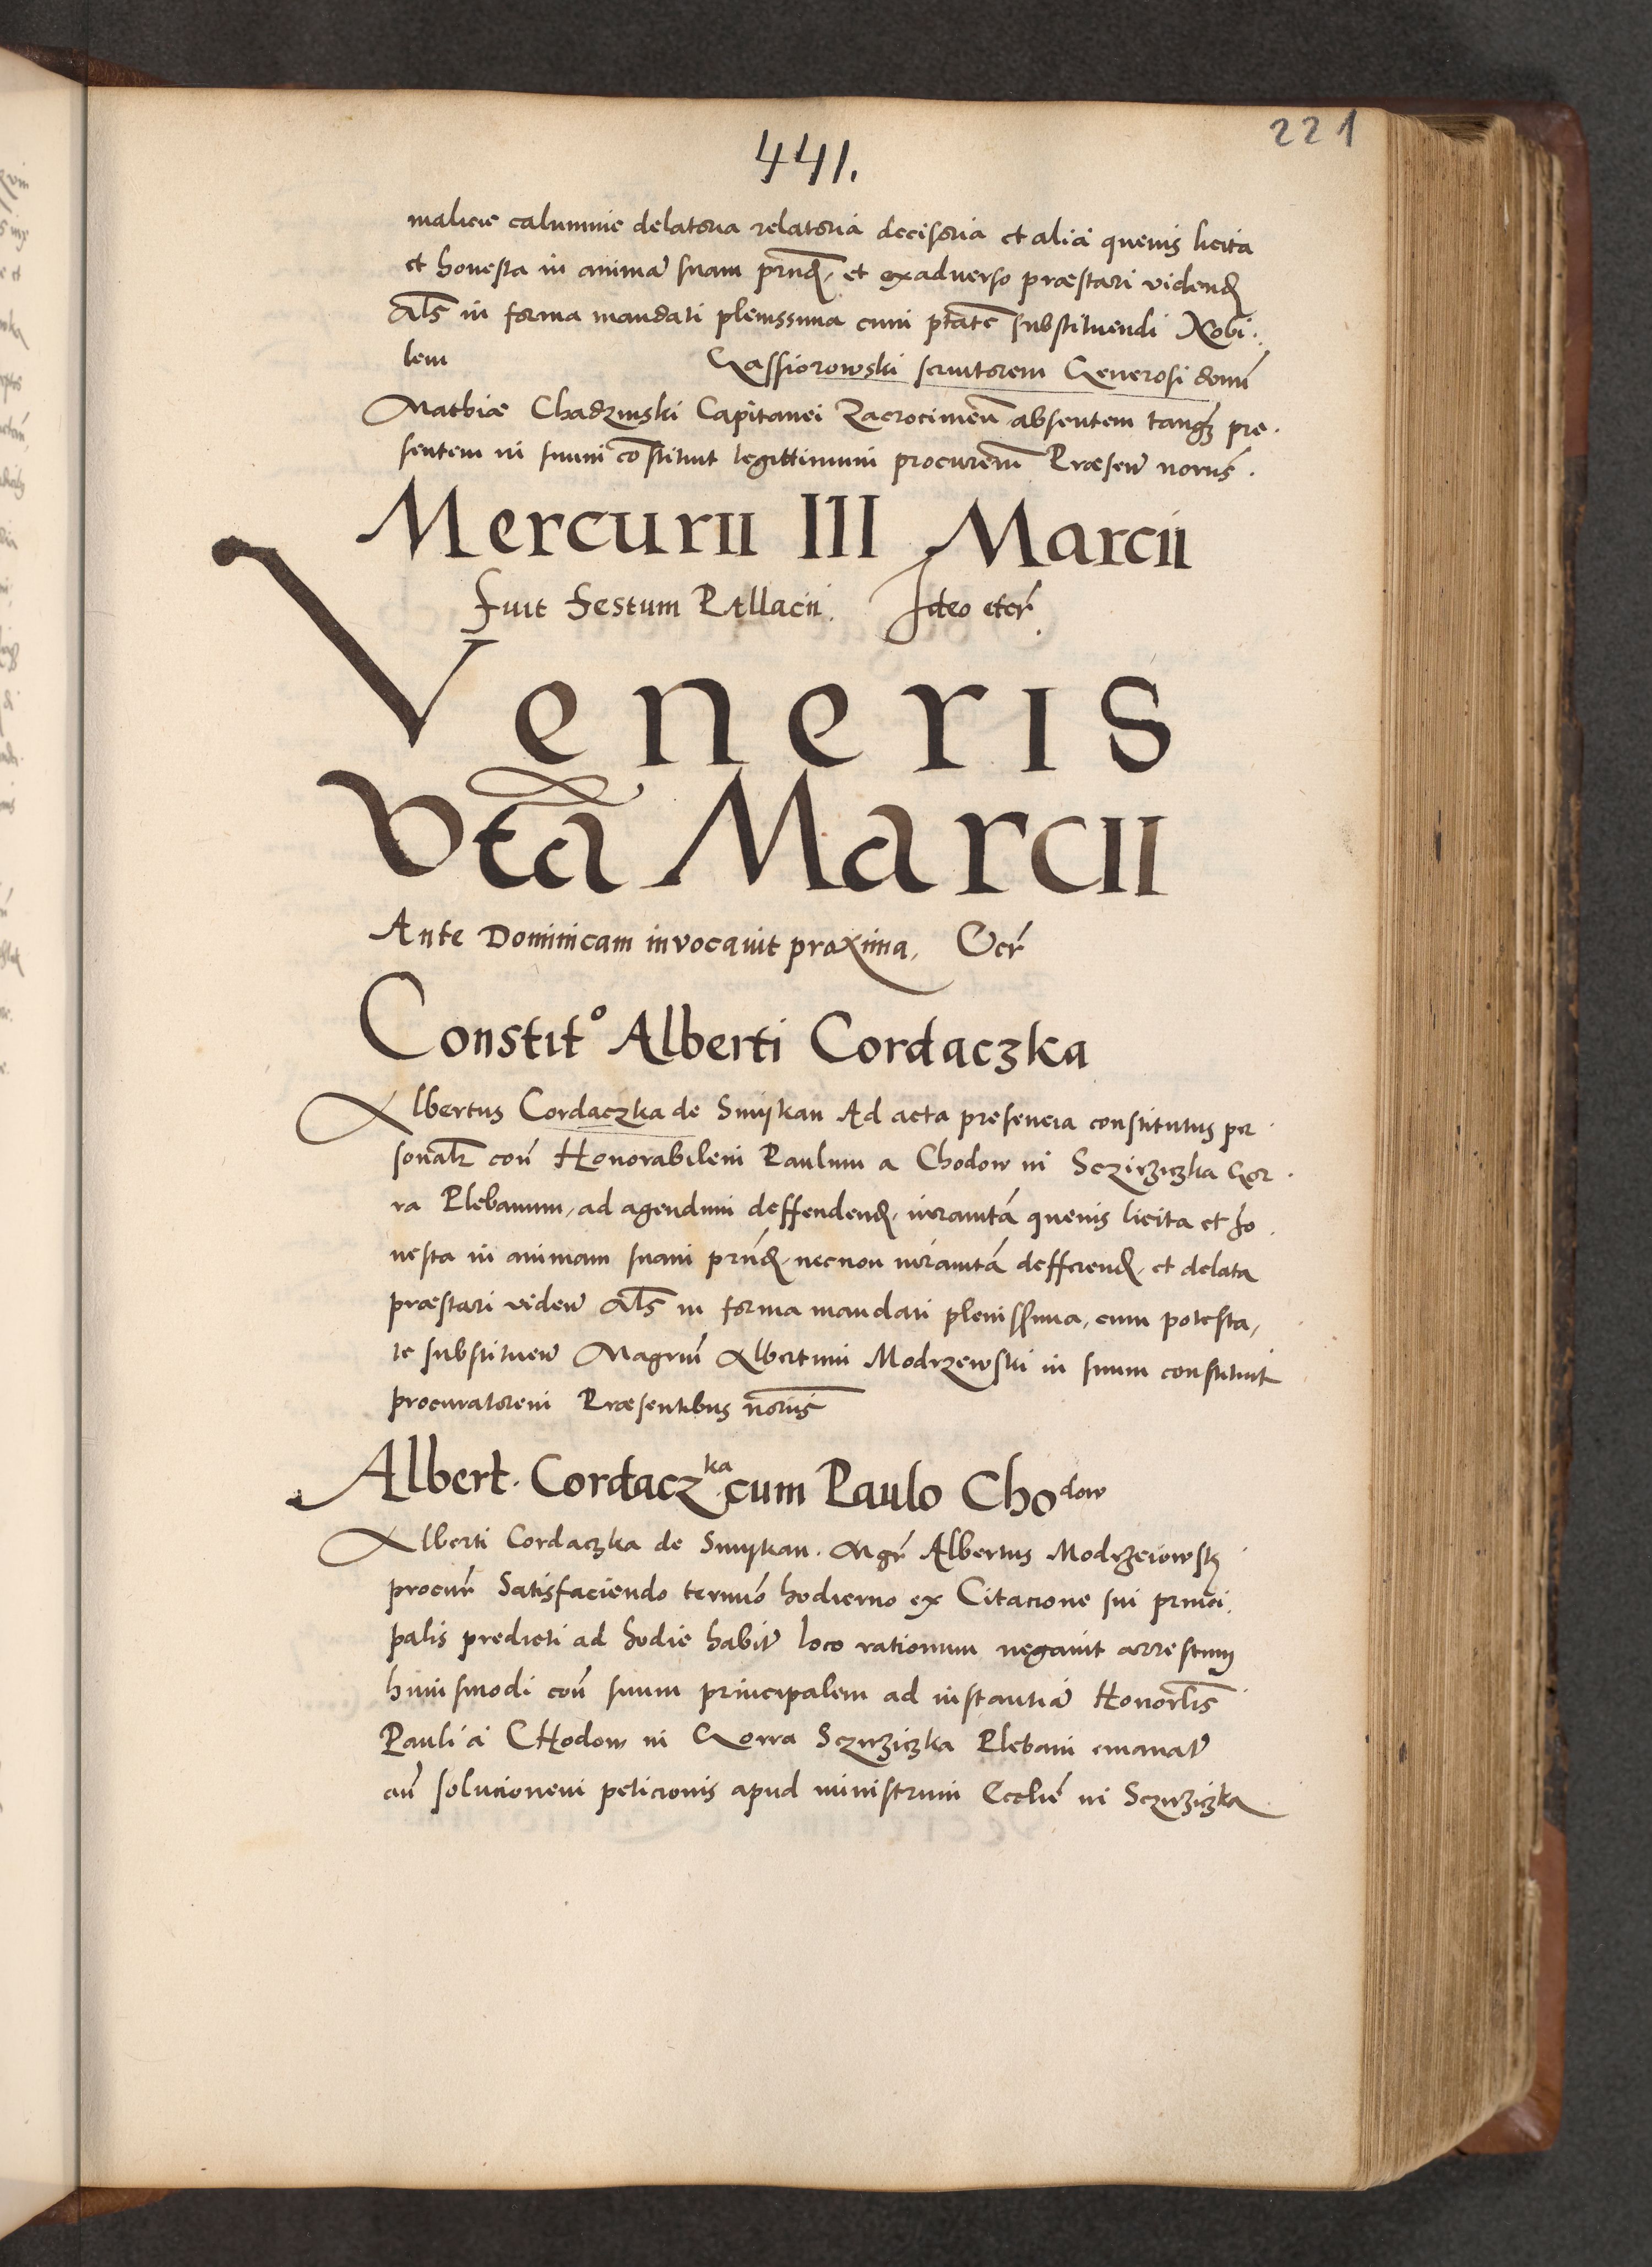 221
441.
malicie calumnie delatoria relatoria decisoria et alia quevis licita
et honesta in animā suam prnđ, et exadverso præstari videnđ
Als in forma mandati plenissima cum ptatē substituendi Nobi-
lem Gassiorowski servitorem Generosi domī
Mathiæ Chadzinski Capitanei Zacrocimeñ absentem tanq̄ȝ pre-
sentem in suum constituit legittimum procurem̄ Præsen̄ norūs.
Mercurii III Marcii
Fuit Festum Pullacii. Ideo etcr̄.
Veneris
Vta Marcii
Ante Dominicam invocavit proxima, Etcr̄
Constit° Alberti Cordaczka
Albertus Cordaczka de Smijkan Ad acta presencia constitutus per
sonalr̄ con̄ Honorabilem Paulum a Chodow in Sczirziczka Gor-
ra Plebanum, ad agendum deffendenđ, iuramtā quevis licita et ho-
nesta in animam suam prnđ, necnon iuramtā defferenđ, et delata
præstari viden̄ Als in forma mandati plenissima, cum potesta,
te substituen̄ Magrum̄ Albertum Modrzewski in suum constituit
procuratorem Præsentibus norīus
Albert. Cordaczka cum Paulo Chodow
Alberti Cordaczka de Smijkan. Mgr̄ Albertus Modrzeiowskȝ
procur̄ Satisfaciendo termīo hodierno ex Citacione sui princi-
palis predicti ad hodie habit̄ loco rationum negavit arrestum
huiusmodi con̄ suum principalem ad instantiā Honorlīs
Pauli a CHodow in Gorra Sczirziczka Plebani emanat̄
an̄ solucionem peticionis apud ministrum Ecclīe in Sczirziczka